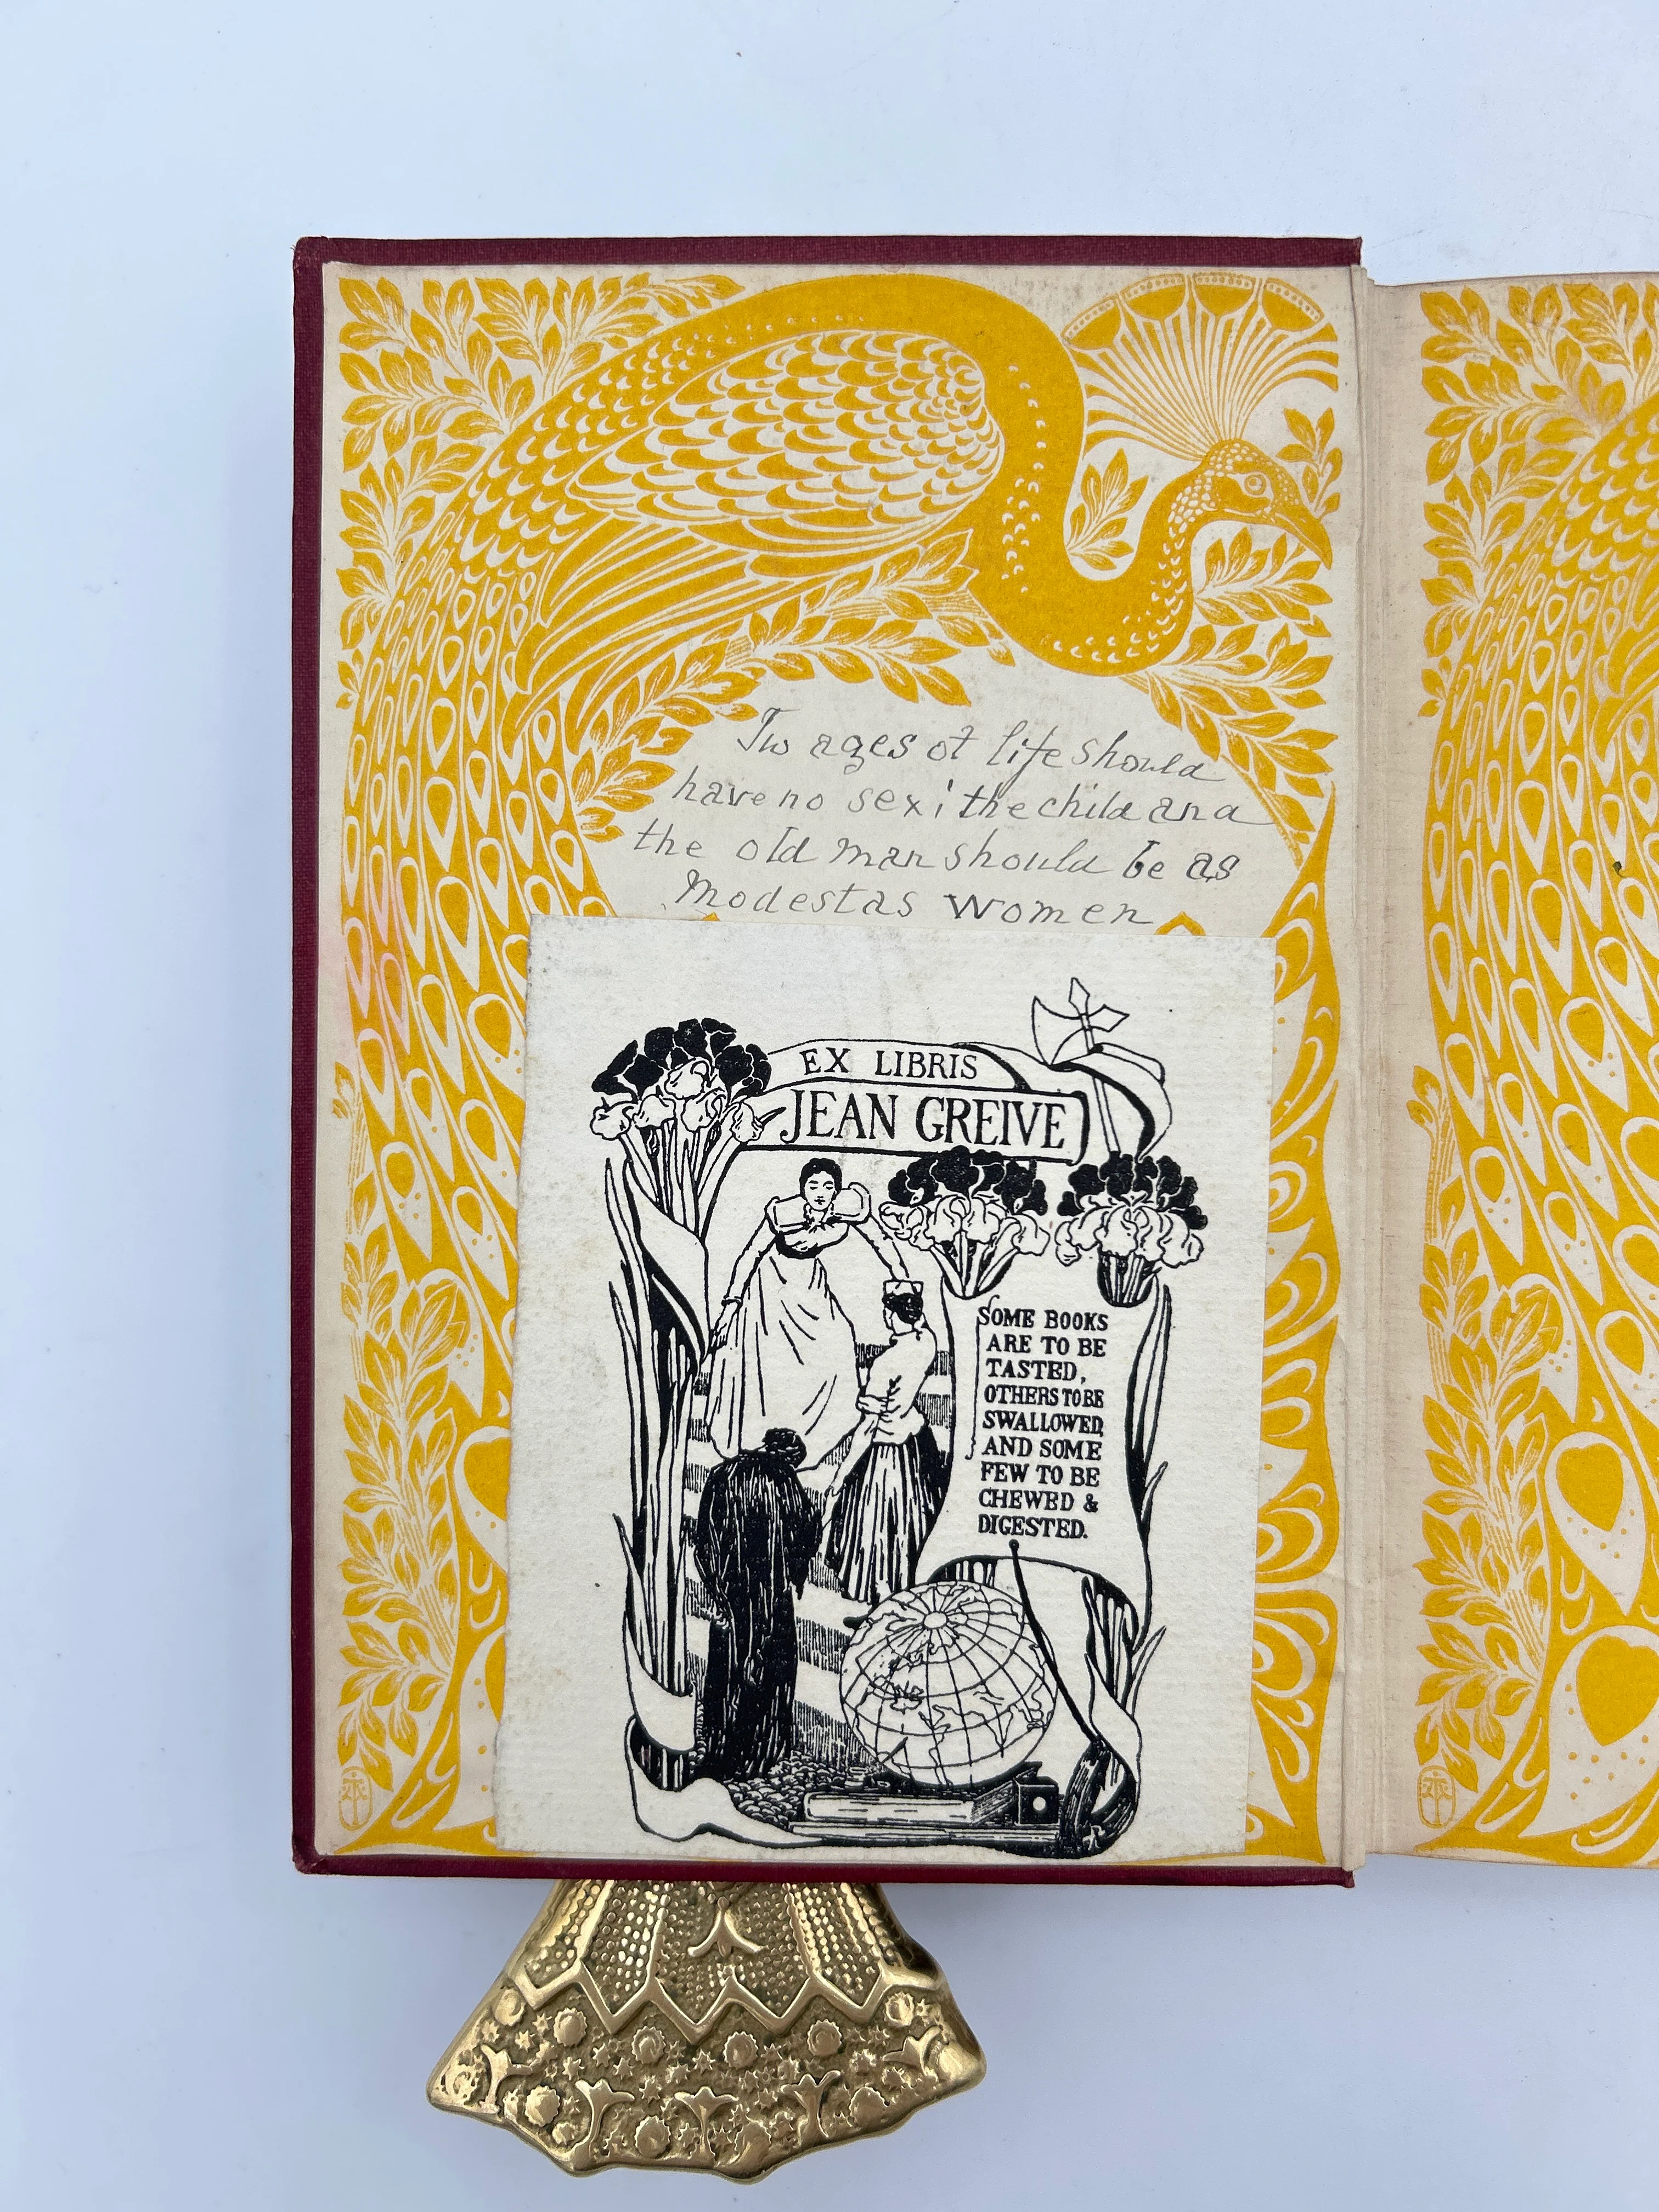 Two ages of life should
have no sex; the child and
the old man should be as
Modest as women
EX LIBRIS
JEAN GREIVE
SOME BOOKS
ARE TO BE
TASTED,
OTHERS TO BE
SWALLOWED,
AND SOME
FEW TO BE
CHEWED &
DIGESTED.